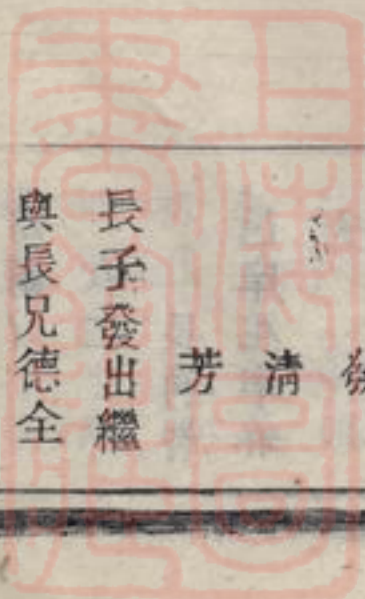 清
芳
長子發出繼
與長兄德全